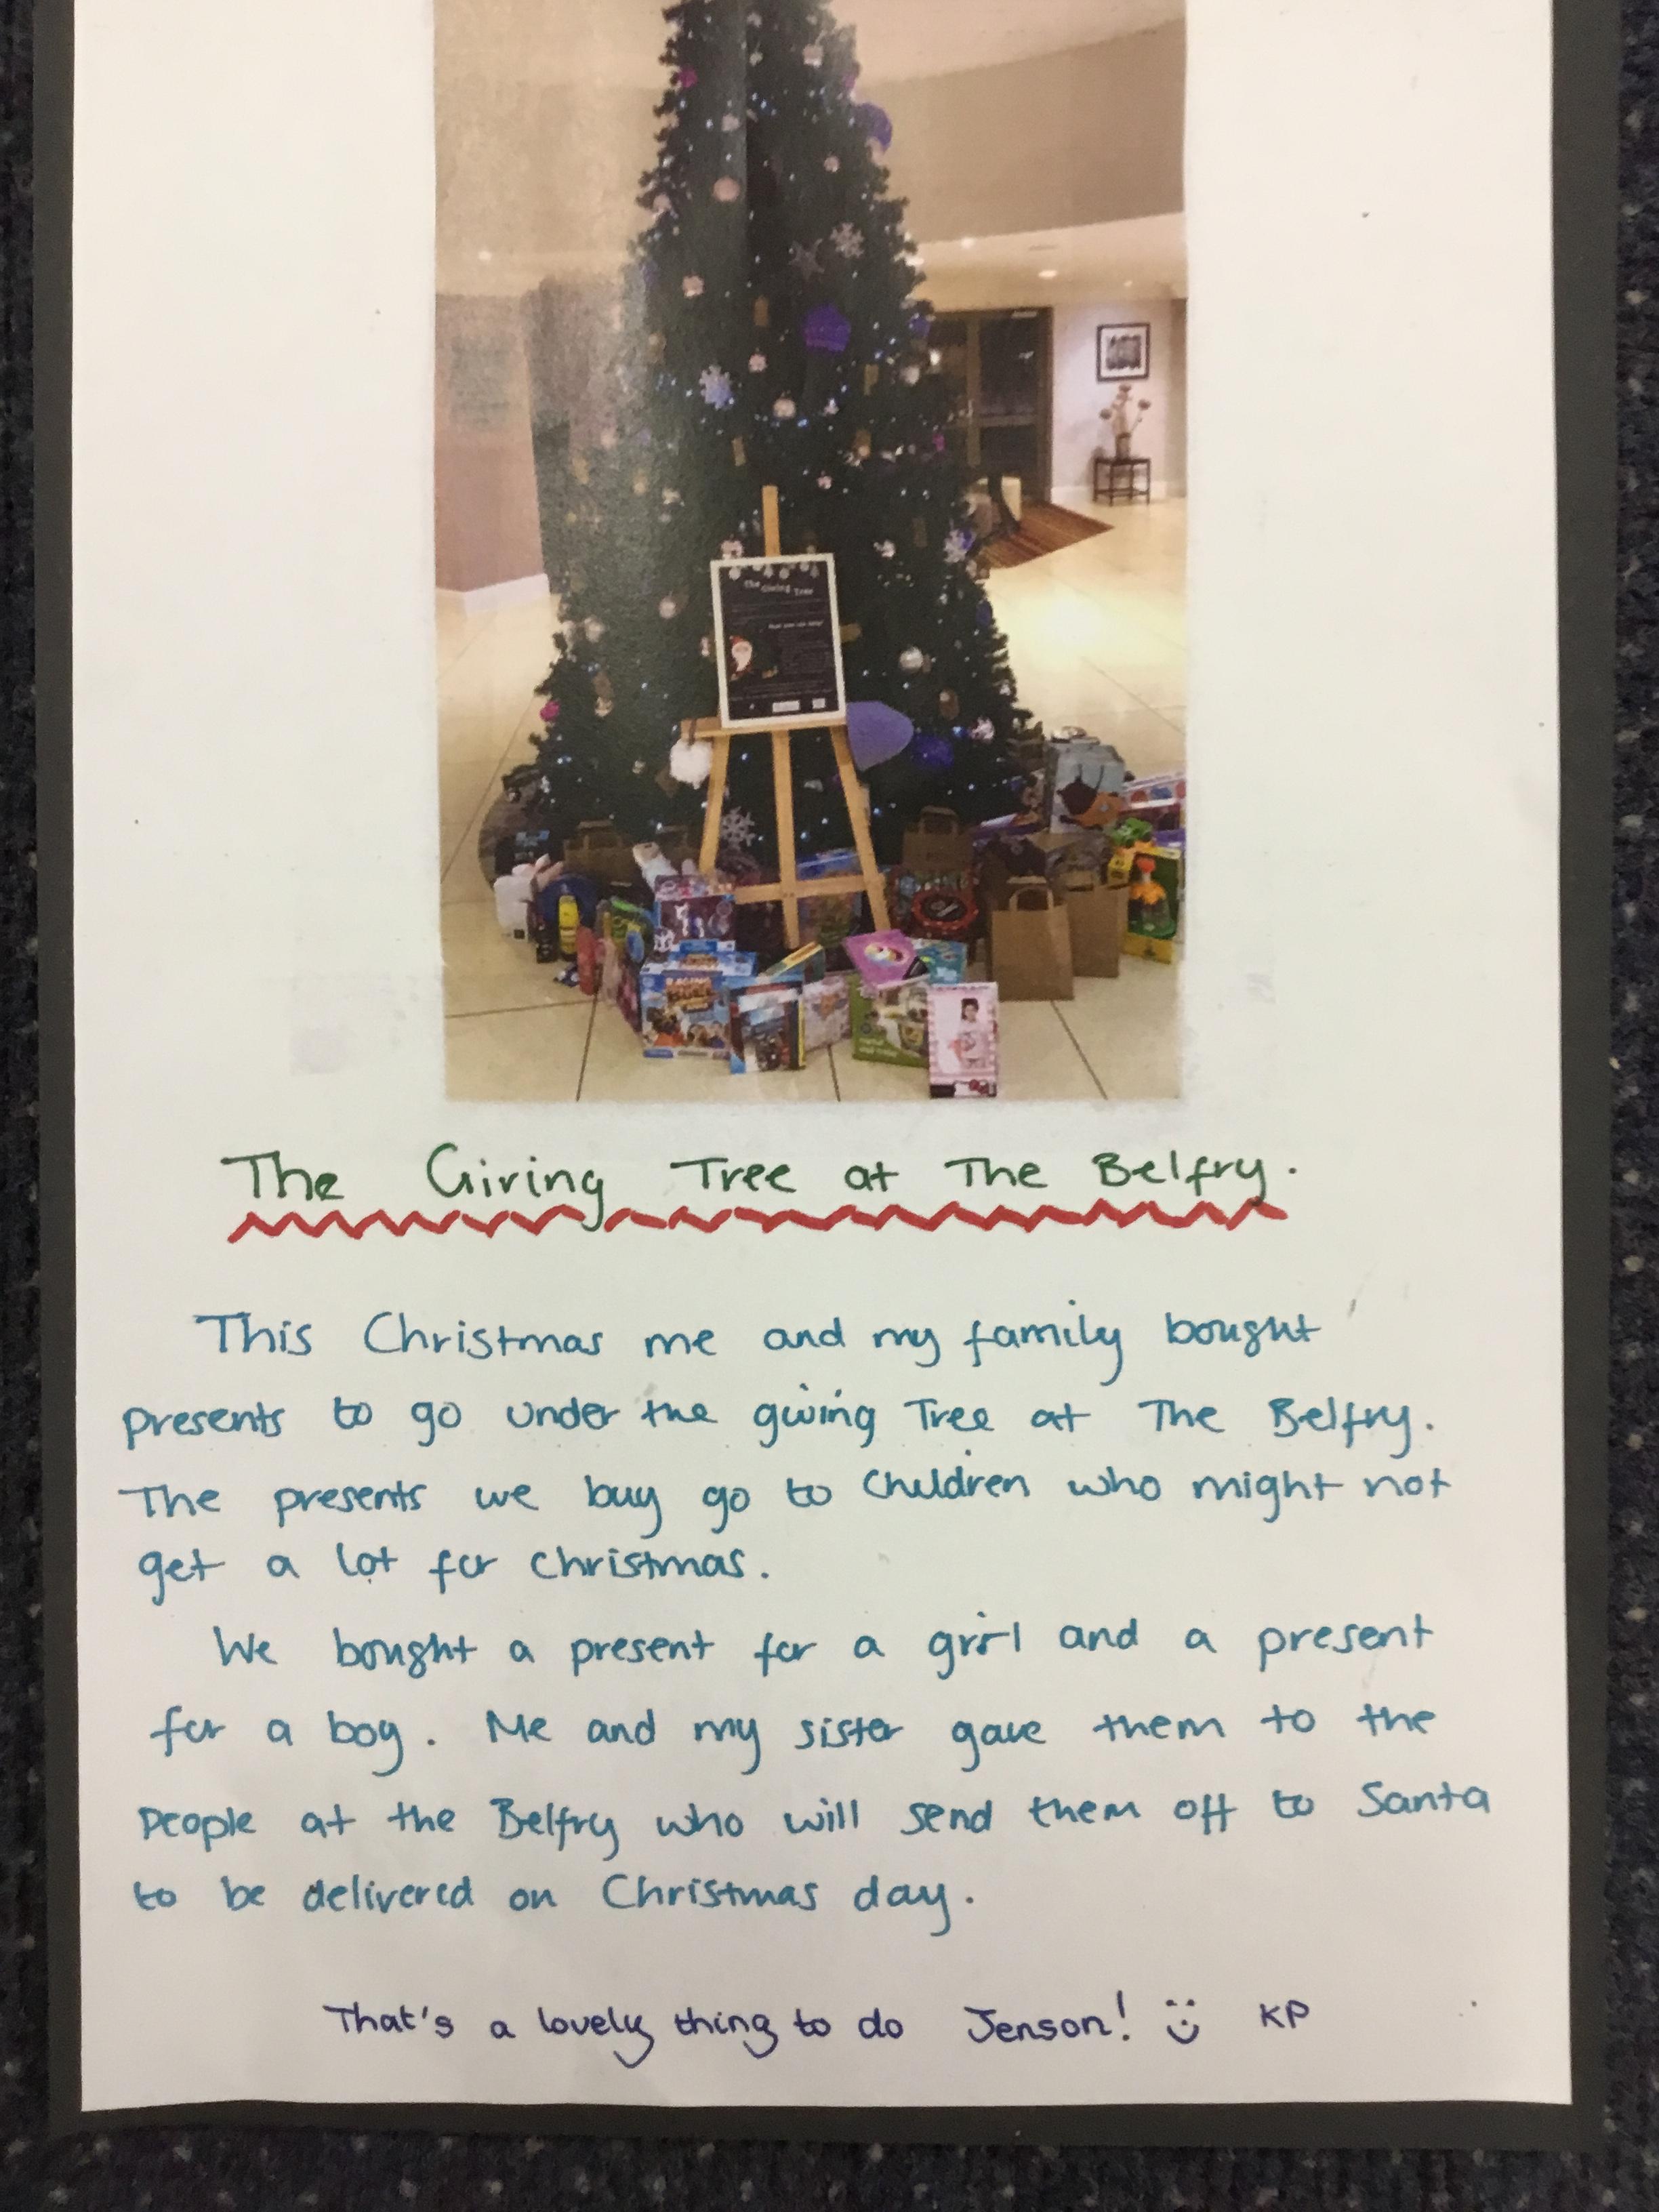 The Giving Tree
The Giving Tree at The Belfry.
This Christmas me and my family bought
presents to go under the giving Tree at The Belfry.
The presents we buy go to Children who might not
get a lot for christmas.
We bought a present for a girl and a present
for a boy. Me and my sister gave them to the
People at the Belfry who will send them off to Santa
to be delivered on Christmas day.
That's a lovely thing to do Jenson! KP